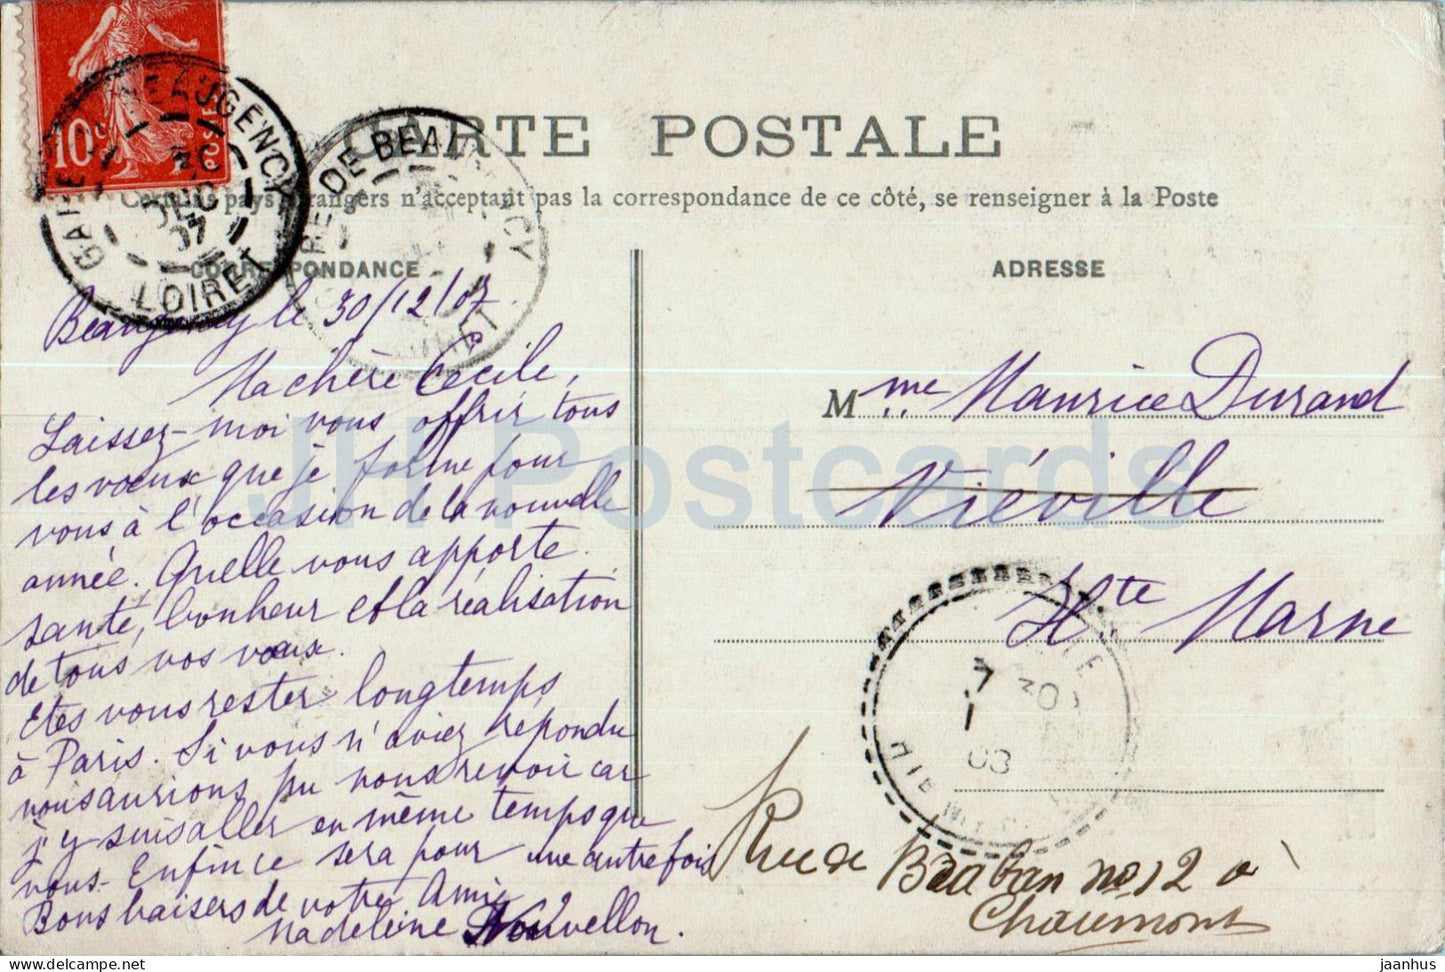 CARTE POSTALE
Certains pays étrangers n'acceptant pas la correspondance de ce côté, se renseigner à la Poste
CORRESPONDANCE
ADRESSE
10c
POSTES
GARE DE BEAUGENCY
30
DEC
07
LOIRET
GARE DE BEAUGENCY
LOIRET
Beaugency le 30/12/07.
Ma chère Cécile,
Laissez-moi vous offrir tous
les vœux que je forme pour
vous à l'occasion de la nouvelle
année. Quelle vous apporte
santé, bonheur et la réalisation
de tous vos vœux.
Etes vous rester longtemps
à Paris. Si vous n'aviez répondu
nous aurions pu nous revoir car
j'y suis aller en même temps que
vous. Enfin ce sera pour une autre fois
Bons baisers de votre Amie
Madeleine Nouvellon.
Mme Maurice Durand
Viéville
Hte Marne
7 30
1
08
Rue de Braban no 12 a
Chaumont
JH Postcards
jaanhus delcampe.net